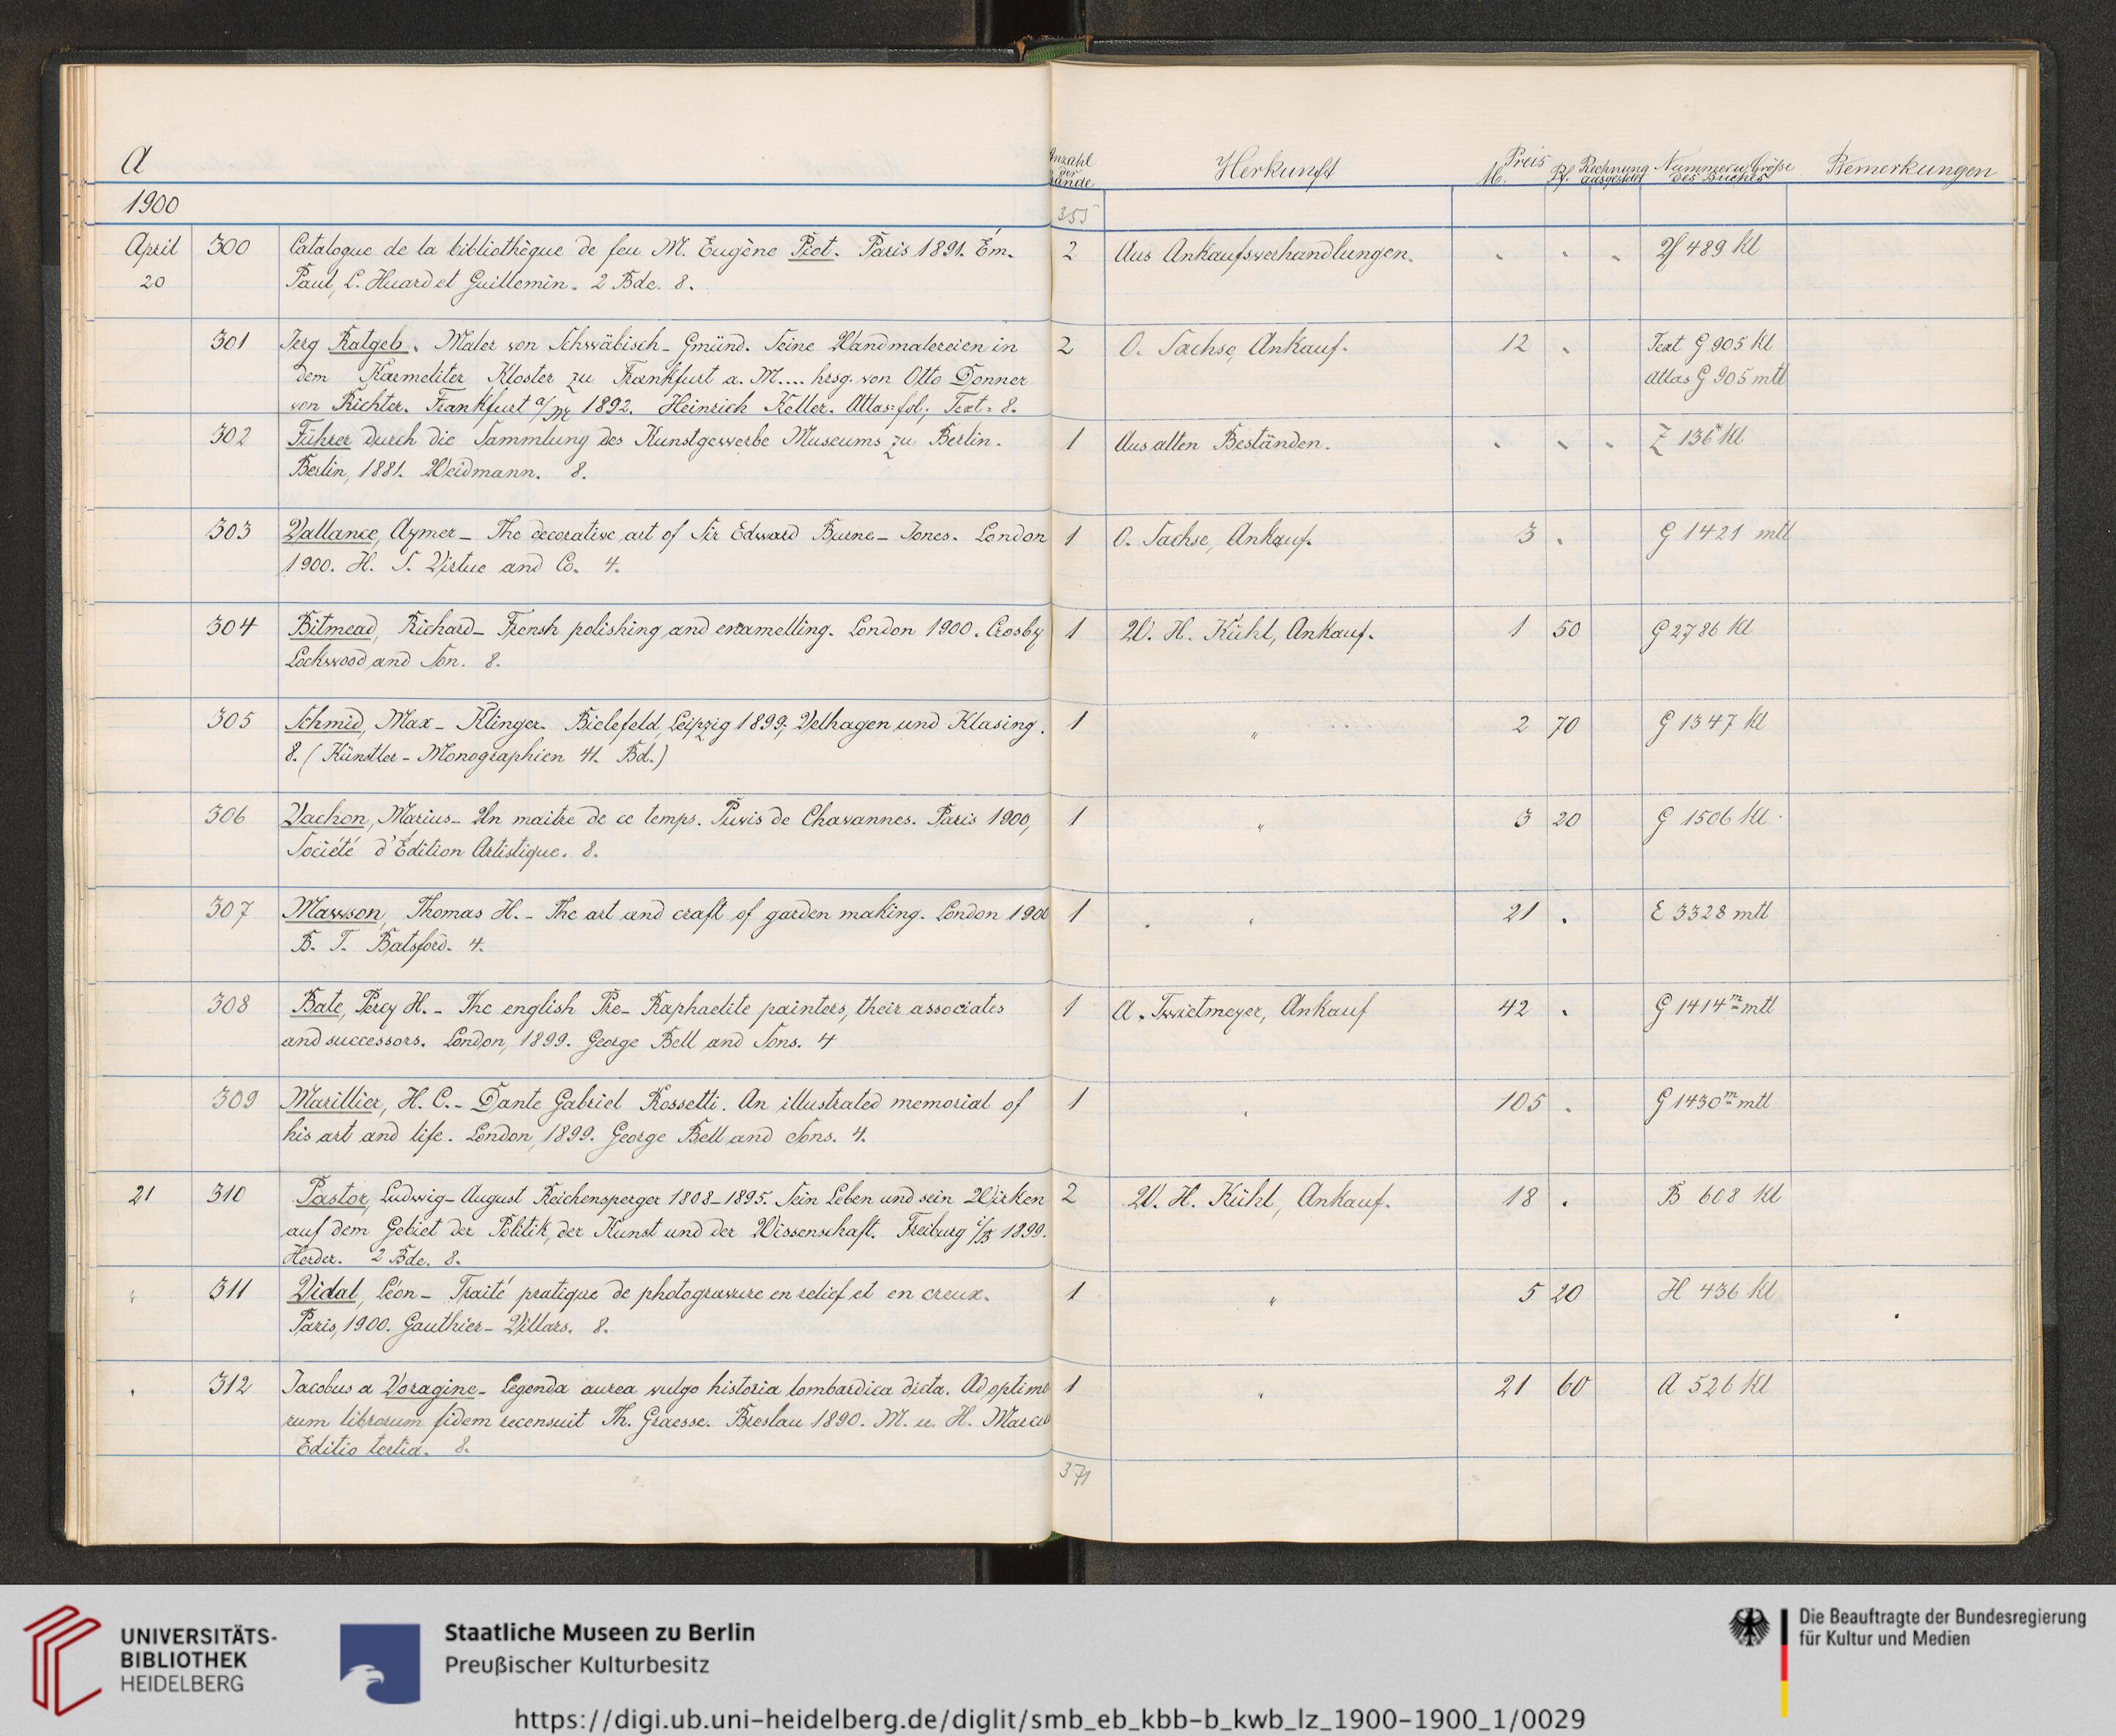 A
Anzahl der Bände Herkunft Preis M. Pf. Rechnung ausgestellt Nummer u. Größe des Buches Bemerkungen
1900 355
April 300 Catalogue de la bibliothèque de feu M. Eugène Piot. Paris 1891. Ém. 2 Aus Ankaufsverhandlungen. 489 kl
20 Paul, L. Huard et Guillemin. 2 Bde. 8.
301 Jerg Ratgeb. Maler von Schwäbisch-Gmünd. Seine Wandmalereien in 2 O. Sachse, Ankauf. 12 . Text G 905 kl
dem Karmeliter Kloster zu Frankfurt a. M.... hrsg. von Otto Donner Atlas G 905 mtl
von Richter. Frankfurt a/M 1892. Heinrich Keller. Atlas=fol; Text=8.
302 Führer durch die Sammlung des Kunstgewerbe Museums zu Berlin. 1 Aus alten Beständen. . . . Z 136 kl
Berlin, 1881. Weidmann. 8.
303 Vallance, Aymer_ The decorative art of Sir Edward Burne-Jones. London 1 O. Sachse, Ankauf. 3 . G 1421 mtl
1900. H. S. Virtue and Co. 4.
304 Bitmead, Richard_ Frensh polishing and enamelling. London 1900. Crosby 1 W. H. Kühl, Ankauf. 1 50 G 2786 kl
Lockwood and Son. 8.
305 Schmid, Max_ Klinger. Bielefeld, Leipzig 1899, Velhagen und Klasing. 1 " 2 70 G 1347 kl
8. (Künstler-Monographien 41. Bd.)
306 Vachon, Marius_ Un maitre de ce temps. Puvis de Chavannes. Paris 1900, 1 " 3 20 G 1506 kl
Société d'Édition Artistique. 8.
307 Mawson, Thomas H._ The art and craft of garden making. London 1900 1 " 21 . E 3328 mtl
B. T. Batsford. 4.
308 Bate, Percy H._ The english Pre-Raphaelite painters, their associates 1 A. Twietmeyer, Ankauf 42 . G 1414 m mtl
and successors. London, 1899. George Bell and Sons. 4
309 Marillier, H. C._ Dante Gabriel Rossetti. An illustrated memorial of 1 " 105 . G 1430 m mtl
his art and life. London, 1899. George Bell and Sons. 4.
21 310 Pastor, Ludwig_ August Reichensperger 1808-1895. Sein Leben und sein Wirken 2 W. H. Kühl, Ankauf. 18 . B 608 kl
auf dem Gebiet der Politik, der Kunst und der Wissenschaft. Freiburg i/B 1899.
Herder. 2 Bde. 8.
" 311 Vidal, Léon_ Traité pratique de photogravure en relief et en creux. 1 " 5 20 H 436 kl
Paris, 1900. Gauthier-Villars. 8.
" 312 Jacobus a Voragine_ Legenda aurea vulgo historia lombardica dicta. Ad optimo 1 " 21 60 A 526 kl
rum librorum fidem recensuit Th. Graesse. Breslau 1890. M. u. H. Marcus
Editio tertia. 8.
371
UNIVERSITÄTS-
BIBLIOTHEK
HEIDELBERG
Staatliche Museen zu Berlin
Preußischer Kulturbesitz
Die Beauftragte der Bundesregierung
für Kultur und Medien
https://digi.ub.uni-heidelberg.de/diglit/smb_eb_kbb-b_kwb_lz_1900-1900_1/0029